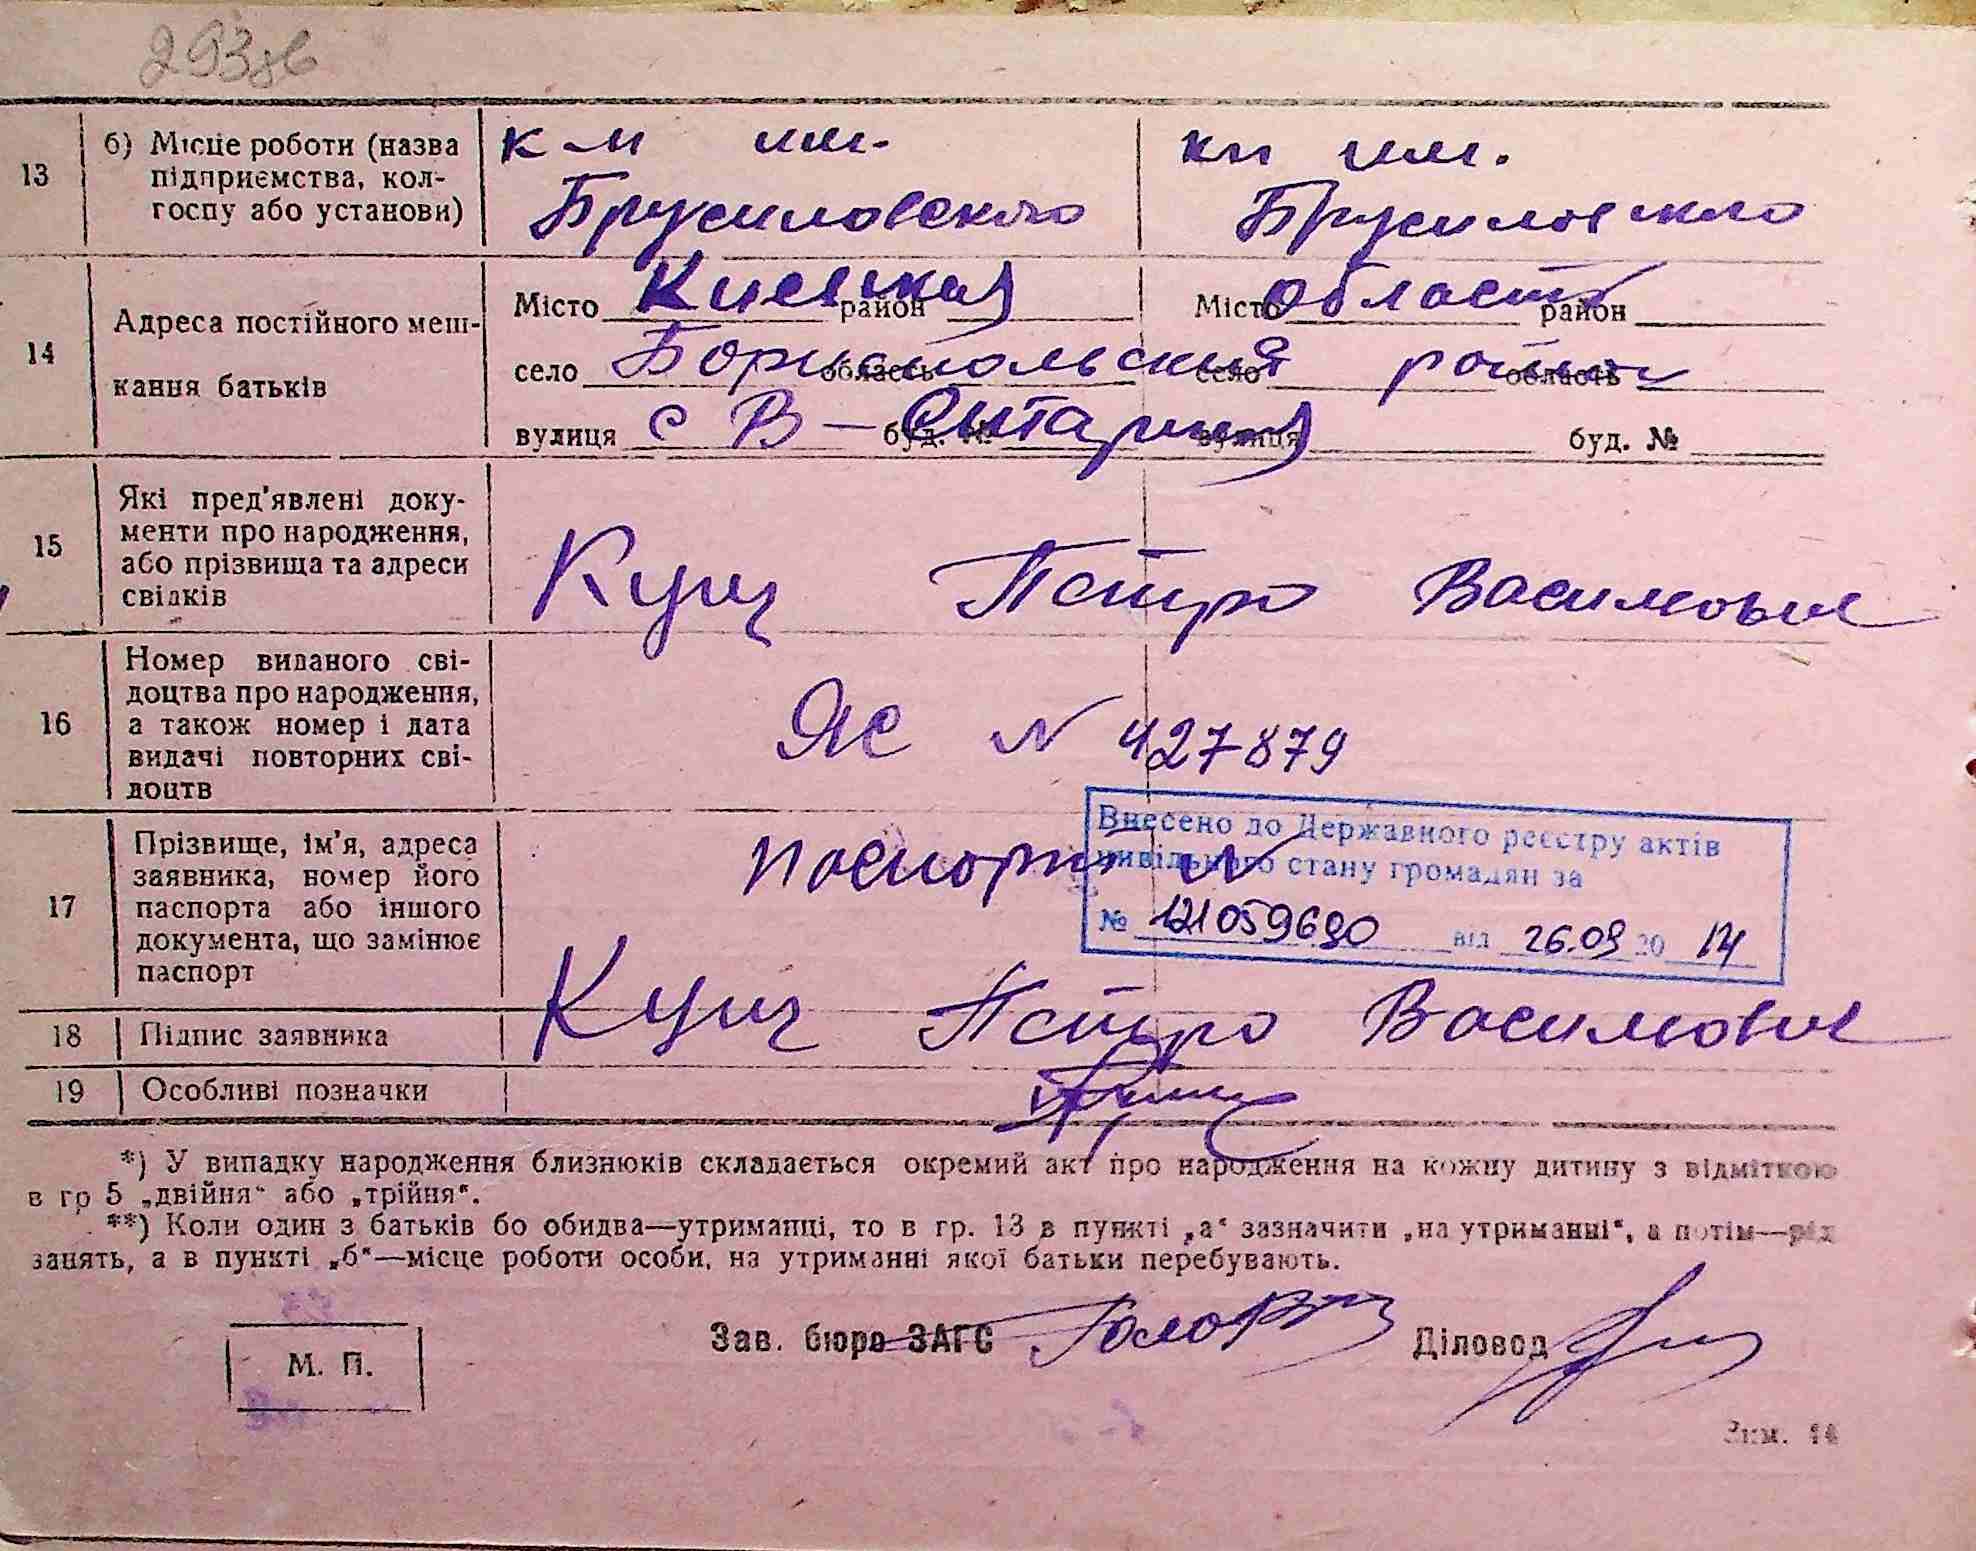 293зв
13 б) Місце роботи (назва підприємства, колгоспу або установи)
к-п им. кп им.
Брусиловского Брусиловского
14 Адреса постійного мешкання батьків
Місто Киевская район Місто область район
село Бориспольский область село район область
вулиця с В - Старица буд. № вулиця буд. №
15 Які пред'явлені доку-
менти про народження,
або прізвища та адреси
свідків
Кущ Петро Василович
16 Номер виданого сві-
доцтва про народження,
а також номер і дата
видачі повторних сві-
доцтв
ЯС N 427879
17 Прізвище, ім'я, адреса
заявника, номер його
паспорта або іншого
документа, що замінює
паспорт
паспорт N
Внесено до Державного реєстру актів
цивільного стану громадян за
№ 121059690 від 26.09 2014
18 Підпис заявника Кущ Петро Василович
19 Особливі позначки
*) У випадку народження близнюків складається окремий акт про народження на кожну дитину з відміткою
в гр 5 „двійня“ або „трійня“.
**) Коли один з батьків бо обидва—утриманці, то в гр. 13 в пункті „а“ зазначити „на утриманні“, а потім—рід
занять, а в пункті „б“—місце роботи особи, на утриманні якої батьки перебувають.
М. П.
Зав. бюро ЗАГС Діловод
Зам. 14